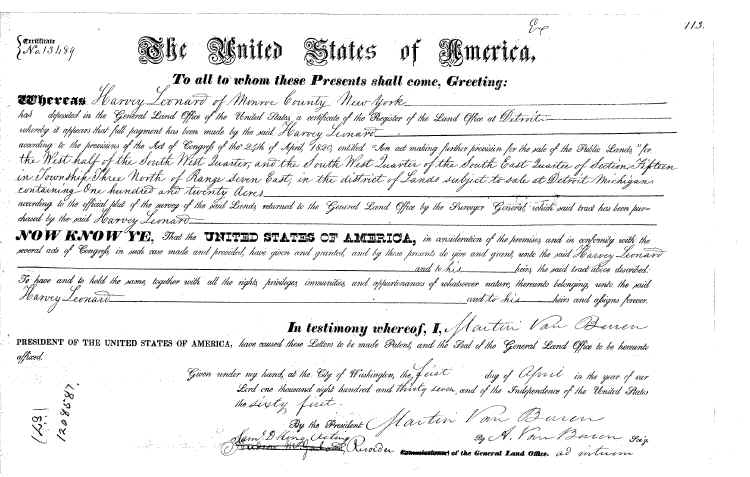 Ex
113.
Certificate
No. 13489
The United States of America,
To all to whom these Presents shall come, Greeting:
Whereas Harvey Leonard of Monroe County New York
has deposited in the General Land Office of the United States, a certificate of the Register of the Land Office at Detroit
whereby it appears that full payment has been made by the said Harvey Leonard
according to the provisions of the Act of Congress of the 24th of April, 1820, entitled "An act making further provision for the sale of the Public Lands," for
the West half of the South West Quarter, and the South West Quarter of the South East Quarter of Section Fifteen
in Township Three North of Range seven East, in the district of Lands subject to sale at Detroit Michigan
containing One hundred and twenty Acres
according to the official plat of the survey of the said Lands, returned to the General Land Office by the Surveyor General, which said tract has been pur-
chased by the said Harvey Leonard
NOW KNOW YE, That the UNITED STATES OF AMERICA, in consideration of the premises, and in conformity with the
several acts of Congress, in such case made and provided, have given and granted, and by these presents do give and grant, unto the said Harvey Leonard
and to his heirs, the said tract above described.
To have and to hold the same, together with all the rights, privileges, immunities, and appurtenances of whatsoever nature, thereunto belonging, unto the said
Harvey Leonard and to his heirs and assigns forever.
In testimony whereof, I, Martin Van Buren
PRESIDENT OF THE UNITED STATES OF AMERICA, have caused these Letters to be made Patent, and the Seal of the General Land Office to be hereunto
affixed.
Given under my hand, at the City of Washington, the first day of April in the year of our
Lord one thousand eight hundred and thirty seven and of the Independence of the United States
the sixty first.
By the President: Martin Van Buren
By A. Van Buren Sec'y.
Saml D King Acting Recorder of the General Land Office. ad interim
(123)
1208587.